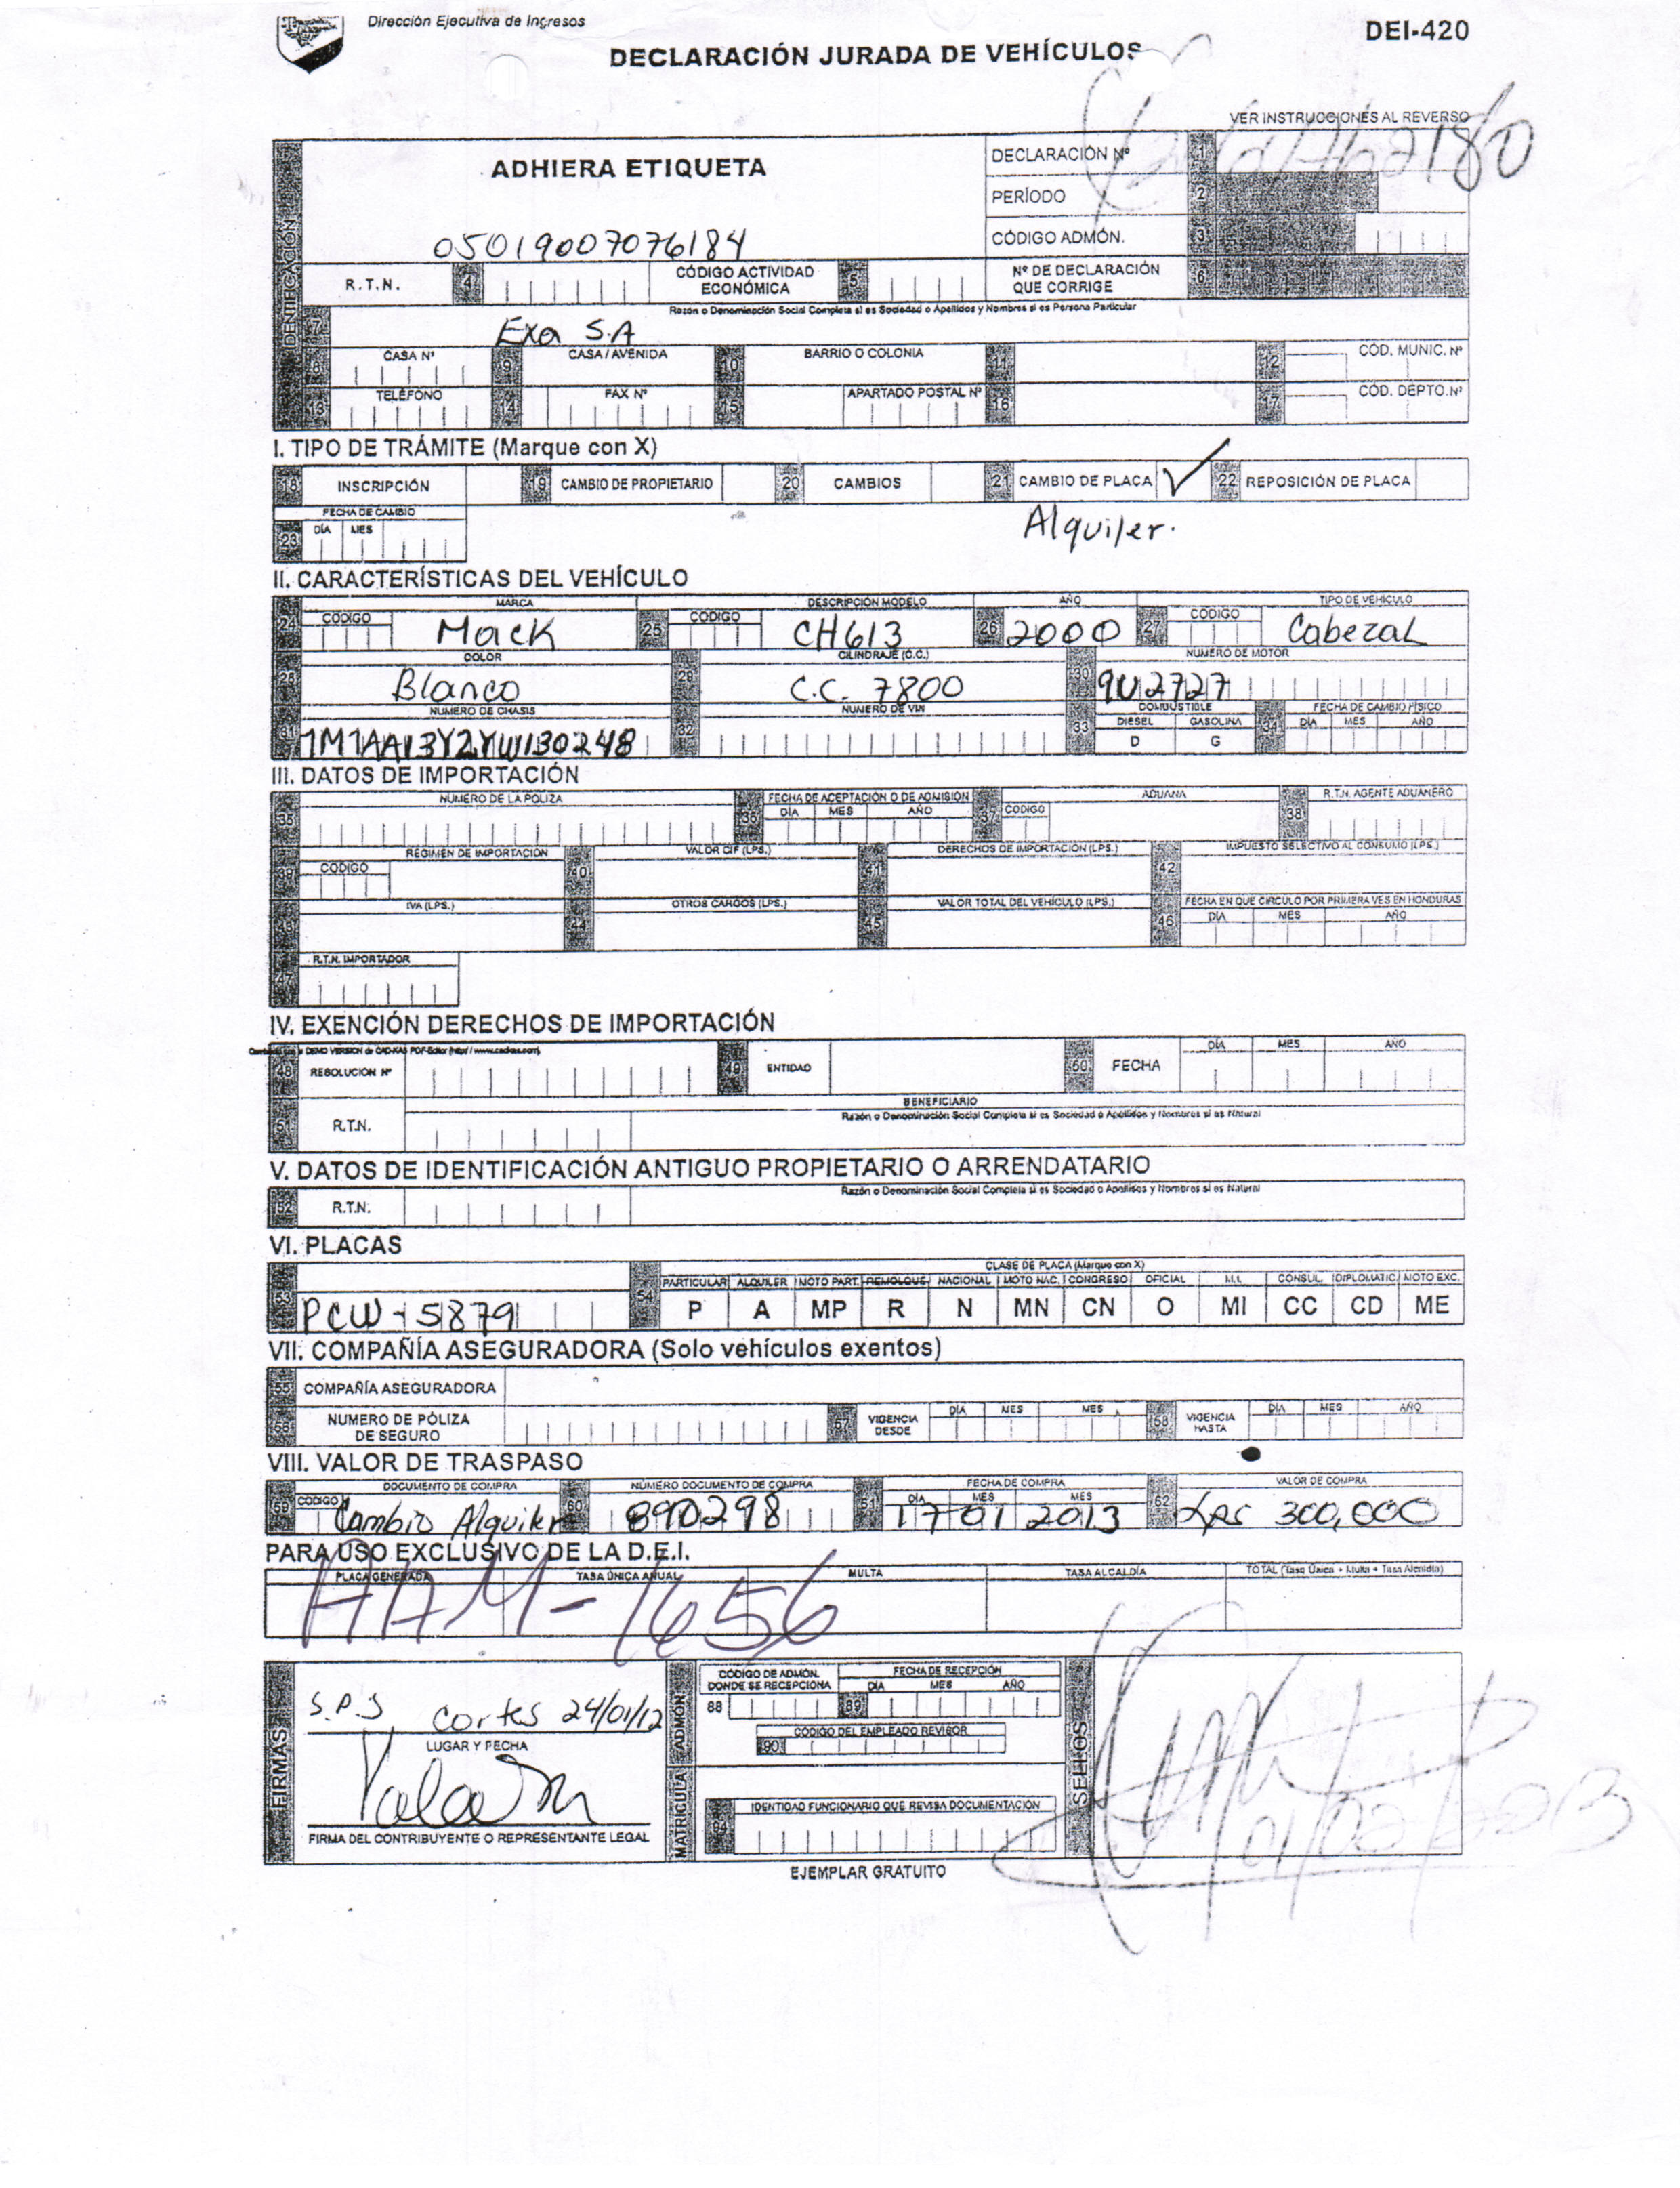 Dirección Ejecutiva de Ingresos
DEI-420
DECLARACIÓN JURADA DE VEHÍCULOS
VER INSTRUCCIONES AL REVERSO
IDENTIFICACIÓN
ADHIERA ETIQUETA
05019007076184
DECLARACIÓN Nº 1
PERÍODO 2
CÓDIGO ADMÓN. 3
R.T.N. 4 CÓDIGO ACTIVIDAD ECONÓMICA 5 Nº DE DECLARACIÓN QUE CORRIGE 6
Razón o Denominación Social Completa si es Sociedad o Apellidos y Nombres si es Persona Particular
7 Exa S.A
8 CASA Nº 9 CASA / AVENIDA 10 BARRIO O COLONIA 11 12 CÓD. MUNIC. Nº
13 TELÉFONO 14 FAX Nº 15 APARTADO POSTAL Nº 16 17 CÓD. DEPTO. Nº
I. TIPO DE TRÁMITE (Marque con X)
18 INSCRIPCIÓN 19 CAMBIO DE PROPIETARIO 20 CAMBIOS 21 CAMBIO DE PLACA ✓ 22 REPOSICIÓN DE PLACA
FECHA DE CAMBIO
23 DÍA MES
Alquiler.
II. CARACTERÍSTICAS DEL VEHÍCULO
MARCA DESCRIPCIÓN MODELO AÑO TIPO DE VEHICULO
24 CODIGO Mack 25 CODIGO CH613 26 2000 27 CODIGO Cabezal
COLOR CILINDRAJE (C.C.) NUMERO DE MOTOR
28 Blanco 29 C.C. 7800 30 9U2727
NUMERO DE CHASIS NUMERO DE VIN COMBUSTIBLE FECHA DE CAMBIO FÍSICO
31 1M1AA13Y2YW130248 32 33 DIESEL GASOLINA 34 DÍA MES AÑO
D G
III. DATOS DE IMPORTACIÓN
NUMERO DE LA POLIZA FECHA DE ACEPTACION O DE ADMISIÓN ADUANA R.T.N. AGENTE ADUANERO
35 36 DÍA MES AÑO 37 CODIGO 38
REGIMEN DE IMPORTACIÓN VALOR CIF (LPS.) DERECHOS DE IMPORTACIÓN (LPS.) IMPUESTO SELECTIVO AL CONSUMO (LPS.)
39 CODIGO 40 41 42
IVA (LPS.) OTROS CARGOS (LPS.) VALOR TOTAL DEL VEHÍCULO (LPS.) FECHA EN QUE CIRCULO POR PRIMERA VES EN HONDURAS
43 44 45 46 DÍA MES AÑO
R.T.N. IMPORTADOR
47
IV. EXENCIÓN DERECHOS DE IMPORTACIÓN
48 RESOLUCION Nº 49 ENTIDAD 50 FECHA DÍA MES AÑO
BENEFICIARIO
51 R.T.N. Razón o Denominación Social Completa si es Sociedad o Apellidos y Nombres si es Natural
V. DATOS DE IDENTIFICACIÓN ANTIGUO PROPIETARIO O ARRENDATARIO
52 R.T.N. Razón o Denominación Social Completa si es Sociedad o Apellisos y Nombres si es Natural
VI. PLACAS
CLASE DE PLACA (Marque con X)
PARTICULAR ALQUILER MOTO PART. REMOLQUE NACIONAL MOTO NAC. CONGRESO OFICIAL M.I. CONSUL. DIPLOMATIC. MOTO EXC.
53 PCW-5879 54 P A MP R N MN CN O MI CC CD ME
VII. COMPAÑÍA ASEGURADORA (Solo vehículos exentos)
55 COMPAÑÍA ASEGURADORA
56 NUMERO DE PÓLIZA DE SEGURO 57 VIGENCIA DESDE DÍA MES MES 58 VIGENCIA HASTA DÍA MES AÑO
VIII. VALOR DE TRASPASO
DOCUMENTO DE COMPRA NÚMERO DOCUMENTO DE COMPRA FECHA DE COMPRA VALOR DE COMPRA
DÍA MES MES
59 CODIGO Cambio Alquiler 60 890298 61 17 01 2013 62 Lps 300,000
PARA USO EXCLUSIVO DE LA D.E.I.
PLACA GENERADA TASA ÚNICA ANUAL MULTA TASA ALCALDÍA TOTAL (Tasa Única + Multa + Tasa Alcaldía)
AAM-1656
FIRMAS
S.P.S Cortes 24/01/12
LUGAR Y FECHA
FIRMA DEL CONTRIBUYENTE O REPRESENTANTE LEGAL
MATRICULA ADMÓN
CÓDIGO DE ADMÓN. DONDE SE RECEPCIONA FECHA DE RECEPCIÓN
DÍA MES AÑO
88 89
CÓDIGO DEL EMPLEADO REVISOR
90
IDENTIDAD FUNCIONARIO QUE REVISA DOCUMENTACIÓN
SELLOS
01/02/2013
EJEMPLAR GRATUITO